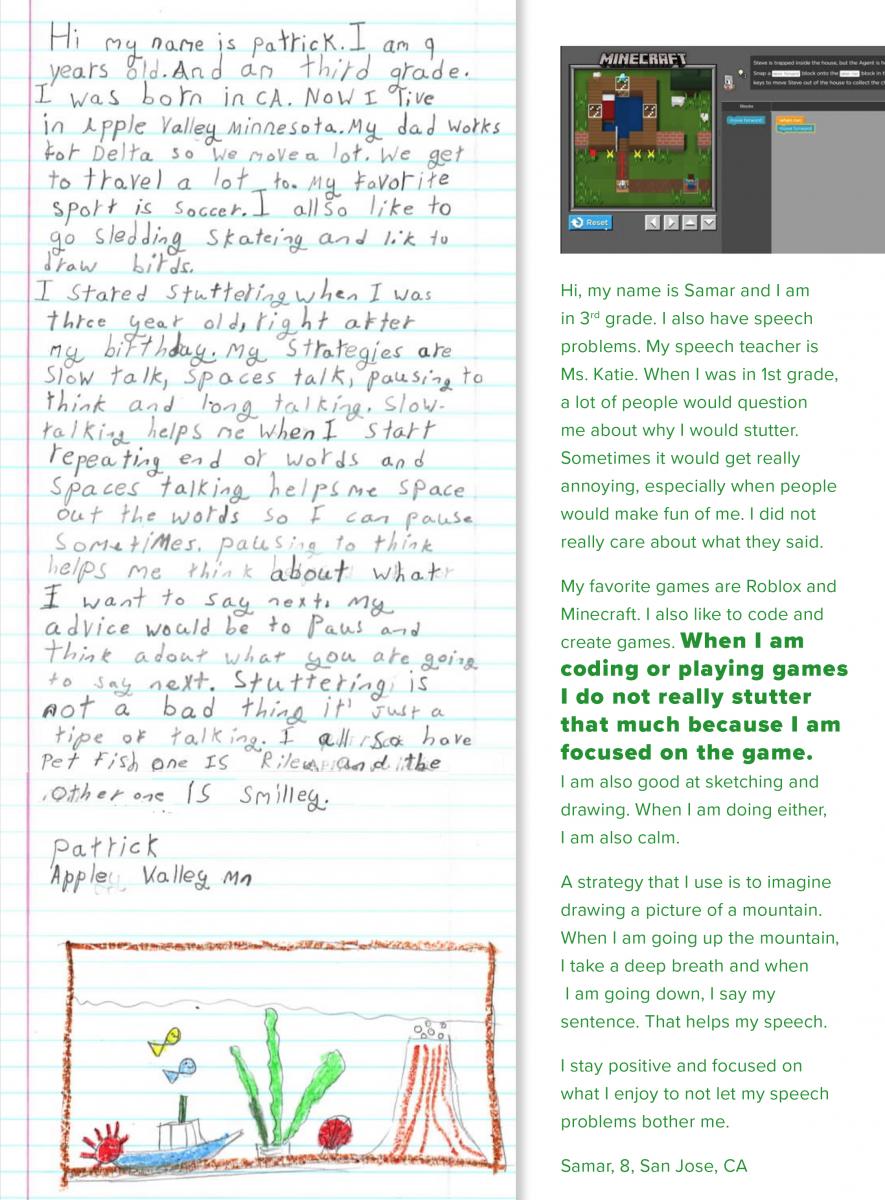 Hi my name is patrick. I am 9
years old. And am third grade.
I was born in CA. NoW I live
in Apple Valley Minnesota. My dad works
for Delta so we move a lot. We get
to travel a lot to. My favorite
sport is soccer. I allso like to
go sledding skateing and lik to
draw birds.
I stared stuttering when I was
three year old, right after
my birthday. My strategies are
Slow talk, spaces talk, pausing to
think and long talking. Slow-
talking helps me when I start
repeating end of words and
spaces talking helps me space
out the words so I can pause
sometimes. pausing to think
helps me think about what
I want to say next. My
advice would be to Paus and
think adout what you are going
to say next. Stuttering is
not a bad thing it' just a
tipe of talking. I allso have
Pet Fish one IS Riley and the
other one IS Smilley.
patrick
Appley Valley Mn
MINECRAFT
Steve is trapped inside the house, but the Agent is
Snap a block onto the block in
keys to move Steve out of the house to collect the
Blocks
move forward
when run
move forward
Reset
Hi, my name is Samar and I am
in 3rd grade. I also have speech
problems. My speech teacher is
Ms. Katie. When I was in 1st grade,
a lot of people would question
me about why I would stutter.
Sometimes it would get really
annoying, especially when people
would make fun of me. I did not
really care about what they said.
My favorite games are Roblox and
Minecraft. I also like to code and
create games. When I am
coding or playing games
I do not really stutter
that much because I am
focused on the game.
I am also good at sketching and
drawing. When I am doing either,
I am also calm.
A strategy that I use is to imagine
drawing a picture of a mountain.
When I am going up the mountain,
I take a deep breath and when
I am going down, I say my
sentence. That helps my speech.
I stay positive and focused on
what I enjoy to not let my speech
problems bother me.
Samar, 8, San Jose, CA